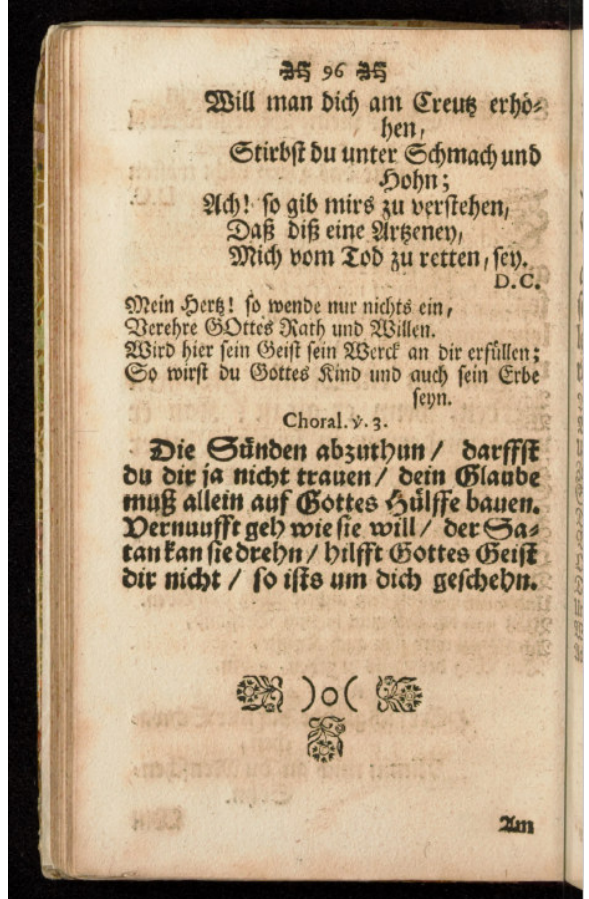 96
Will man dich am Creutz erhö-
hen,
Stirbst du unter Schmach und
Hohn;
Ach! so gib mirs zu verstehen,
Daß diß eine Artzeney,
Mich vom Tod zu retten, sey.
D.C.
Mein Hertz! so wende nur nichts ein,
Verehre GOttes Rath und Willen.
Wird hier sein Geist sein Werck an dir erfüllen;
So wirst du Gottes Kind und auch sein Erbe
seyn.
Choral. v. 3.
Die Sünden abzuthun / darffst
du dir ja nicht trauen / dein Glaube
muß allein auf Gottes Hülffe bauen.
Vernuufft geh wie sie will / der Sa-
tan kan sie drehn / hilfft Gottes Geist
dir nicht / so ists um dich geschehn.
)o(
Am